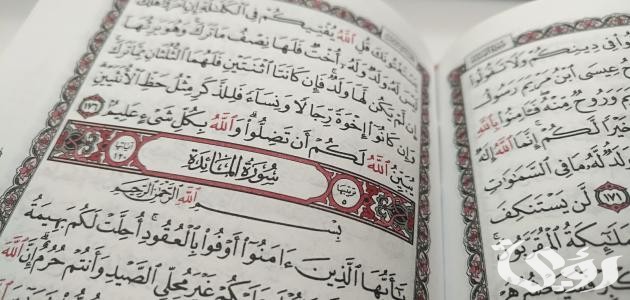 فِى دِينِكُمْ وَلَا تَقُولُوا۟
عِيسَى ٱبْنُ مَرْيَمَ رَسُولُ
وَرُوحٌ مِّنْهُ فَـَٔامِنُوا۟ بِٱللَّهِ
خَيْرًا لَّكُمْ إِنَّمَا ٱللَّهُ إِلَـٰهٌ
وَلَدٌ لَّهُۥ مَا فِى ٱلسَّمَـٰوَٰتِ
١٧١ لَّن يَسْتَنكِفَ
ٱلْمُقَرَّبُونَ
قُلِ ٱللَّهُ يُفْتِيكُمْ فِى ٱلْكَلَـٰلَةِ إِنِ ٱمْرُؤٌا۟ هَلَكَ
لَيْسَ لَهُۥ وَلَدٌ وَلَهُۥٓ أُخْتٌ فَلَهَا نِصْفُ مَا تَرَكَ وَهُوَ يَرِثُهَآ
إِن لَّمْ يَكُن لَّهَا وَلَدٌ فَإِن كَانَتَا ٱثْنَتَيْنِ فَلَهُمَا ٱلثُّلُثَانِ مِمَّا تَرَكَ
وَإِن كَانُوٓا۟ إِخْوَةً رِّجَالًا وَنِسَآءً فَلِلذَّكَرِ مِثْلُ حَظِّ ٱلْأُنثَيَيْنِ
يُبَيِّنُ ٱللَّهُ لَكُمْ أَن تَضِلُّوا۟ وَٱللَّهُ بِكُلِّ شَىْءٍ عَلِيمٌۢ ١٧٦
ترتيبها ٥ سُورَةُ المَائِدَةِ آياتها ١٢٠
بِسْمِ ٱللَّهِ ٱلرَّحْمَـٰنِ ٱلرَّحِيمِ
يَـٰٓأَيُّهَا ٱلَّذِينَ ءَامَنُوٓا۟ أَوْفُوا۟ بِٱلْعُقُودِ أُحِلَّتْ لَكُم بَهِيمَةُ
عَلَيْكُمْ غَيْرَ مُحِلِّى ٱلصَّيْدِ وَأَنتُمْ حُرُمٌ إِنَّ ٱللَّهَ
رؤى